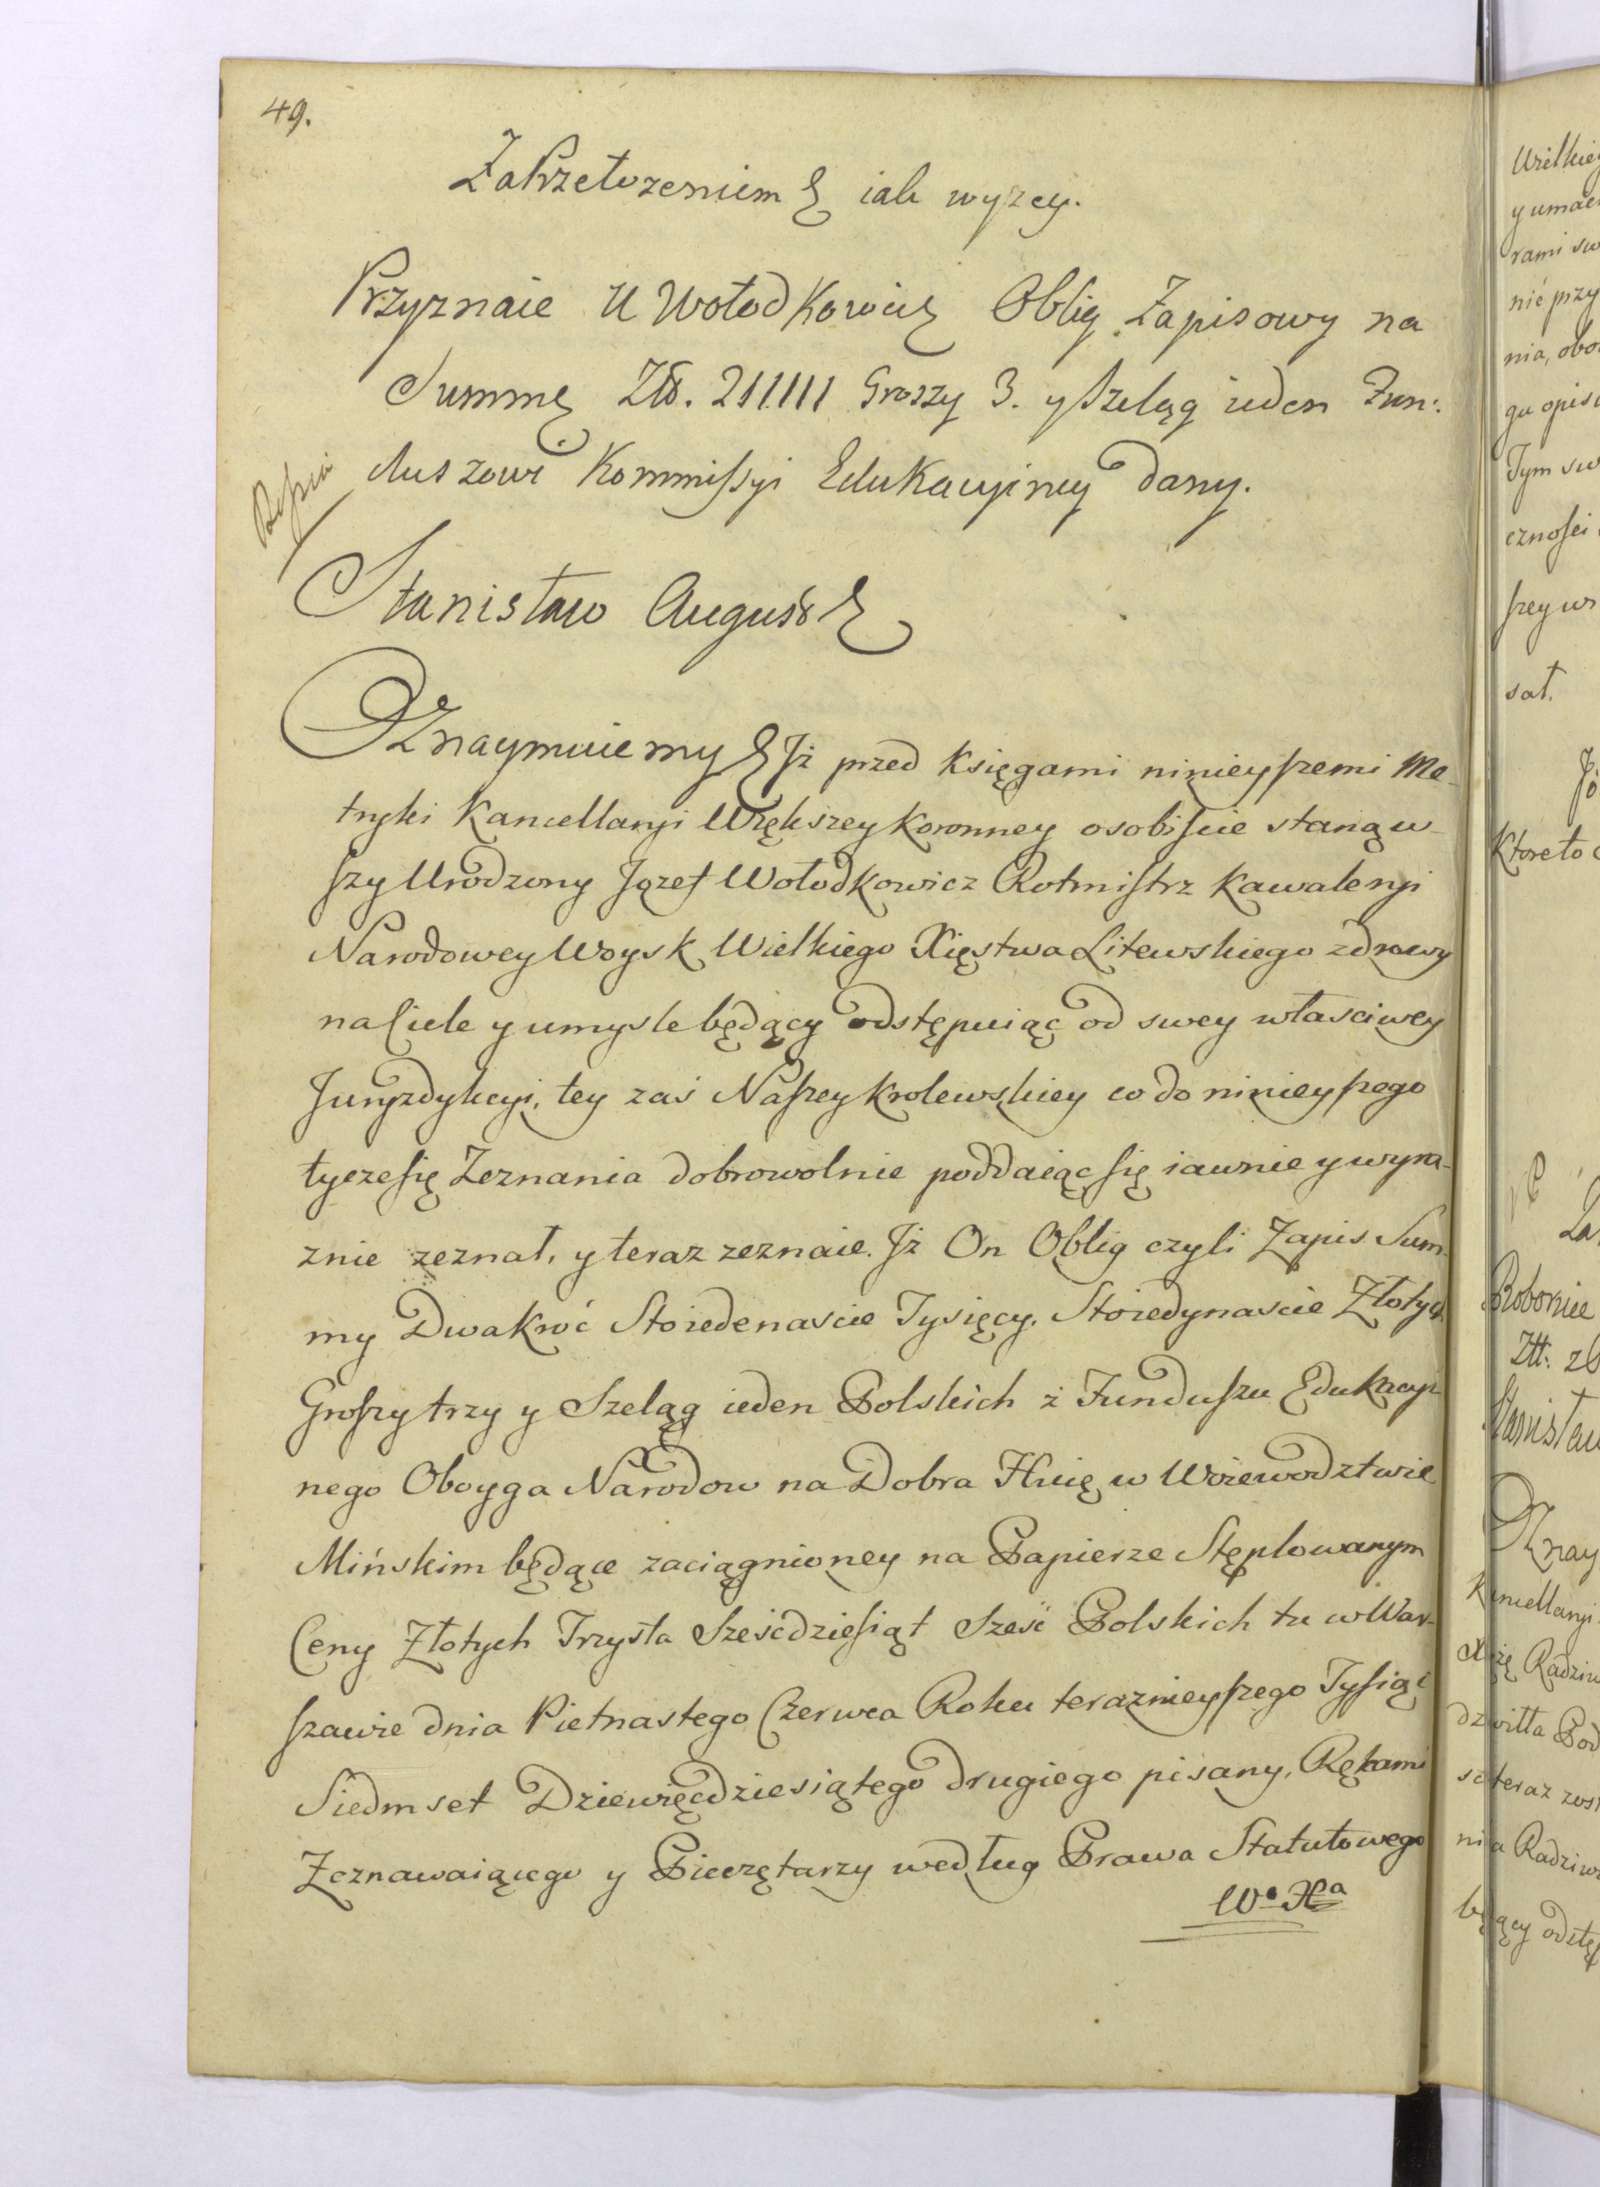 49.
Za Przełożeniem &c iako wyzey.
Przyznaie U Wołodkowicz Oblig Zapisowy na
Summę Złł. 211111 Groszy 3. y Szeląg ieden Fun:
duszowi Kommissyi Edukacyiney dany.
Stanisław August &c
Oznaymuiemy &c Jż przed Księgami ninieyszemi Me-
tryki Kancellaryi Większey Koronney osobiscie stanąw-
szy Urodzony Jozef Wołodkowicz Rotmistrz Kawaleryi
Narodowey Woysk Wielkiego Xięstwa Litewskiego zdrowy
na Ciele y umysle będący odstępuiąc od swey własciwey
Juryzdykcyi, tey zaś Naszey Krolewskiey co do ninieyszego
tycze się Zeznania dobrowolnie poddaiąc się iawnie y wyra-
znie zeznał, y teraz zeznaie. Jż On Oblig czyli Zapis Sum-
my Dwakroć Stoiedenascie Tysięcy, Stoiedynascie Złotych
Groszy trzy y Szeląg ieden Polskich z Funduszu Edukacyi-
nego Oboyga Narodow na Dobra w Woiewodztwie
Mińskim będące zaciągnioney na Papierze Stęplowanym
Ceny Złotych Trzysta Szesćdziesiąt Sześć Polskich tu w War-
szawie dnia Pietnastego Czerwca Roku teraznieyszego Tysiąc
Siedmset Dziewięćdziesiątego drugiego pisany, Rękami
Zeznawaiącego y Pieczętarzy według Prawa Statutowego
Wo Xa
Wielkieg
y umac
rami sw
nić przy
nia, obo
gu opis
Tym sw
cznosci
szey w
sał.
Ktoreto
Za
Złł. 26
Stanisław
Oznay
Kancellaryi
Xiążę Radziw
dziwiłła Pod
teraz
nia Radziw
będący odstęp